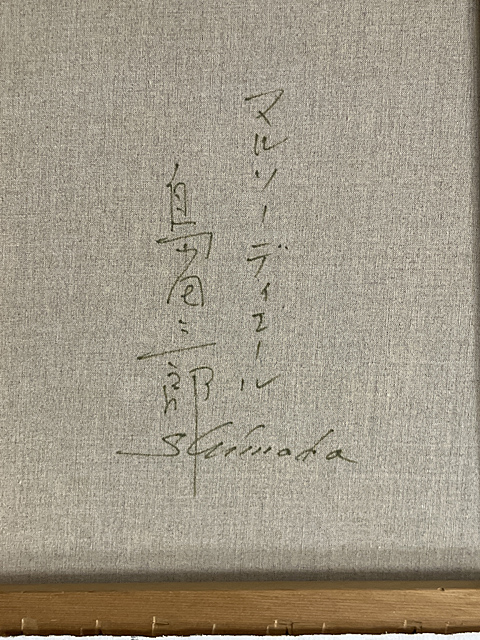 マルソーディエール
島田三郎
Shimada